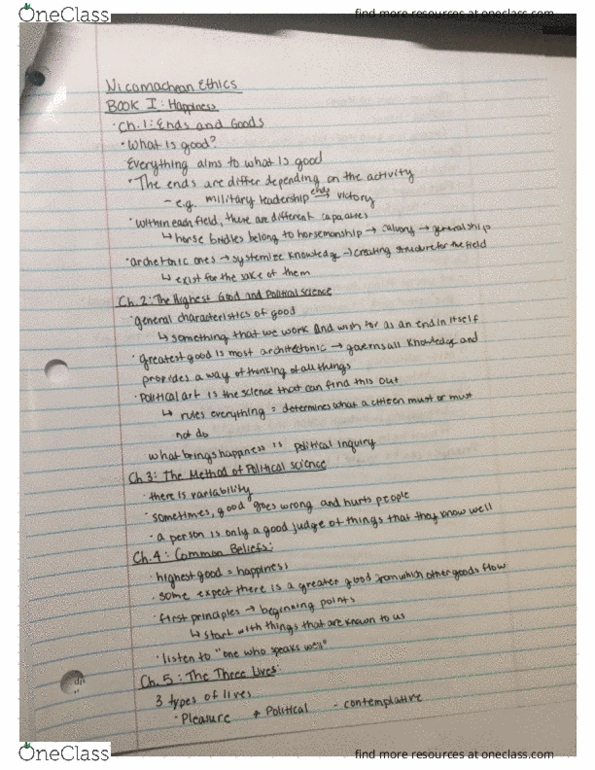 OneClass
find more resources at oneclass.com
Nicomachean Ethics
BOOK I: Happiness
· Ch. 1: Ends and Goods
· What is good?
Everything aims to what is good
· The ends are differ depending on the activity
- e.g. military leadership ends → victory
· within each field, there are different capacities
↳ horse bridles belong to horsemanship → calvary → generalship
· architectonic ones → systemize knowledge → creating structure for the field
↳ exist for the sake of them
Ch. 2: The Highest Good and Political science
· general characteristics of good
↳ something that we work and wish for as an end in itself
· greatest good is most architectonic → governs all knowledge and
provides a way of thinking of all things
· Political art is the science that can find this out
↳ rules everything = determines what a citizen must or must
not do
what brings happiness is political inquiry
Ch. 3: The Method of Political science
· there is variability
· sometimes, good goes wrong and hurts people
· a person is only a good judge of things that they know well
Ch. 4: Common Beliefs:
· highest good = happiness
· some expect there is a greater good from which other goods flow
· first principles → beginning points
↳ start with things that are known to us
· listen to "one who speaks well"
Ch. 5: The Three Lives:
3 types of lives
· Pleasure · Political - contemplative
OneClass
find more resources at oneclass.com